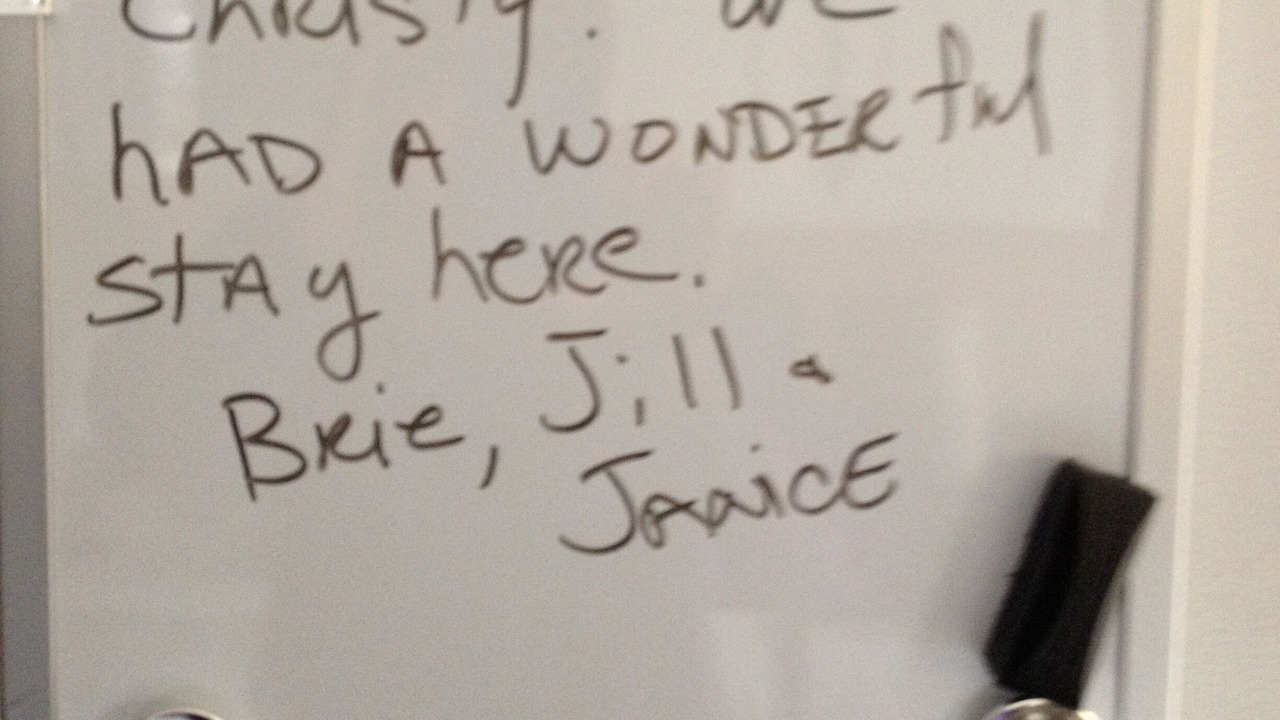 Christy. We
hAD A WONDERful
stAy here.
Brie, Jill &
JANicE